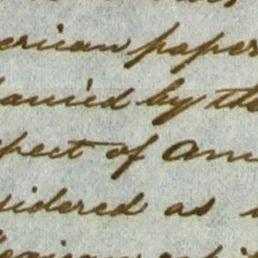 erican paper
panied by the
spect of Am
sidered as